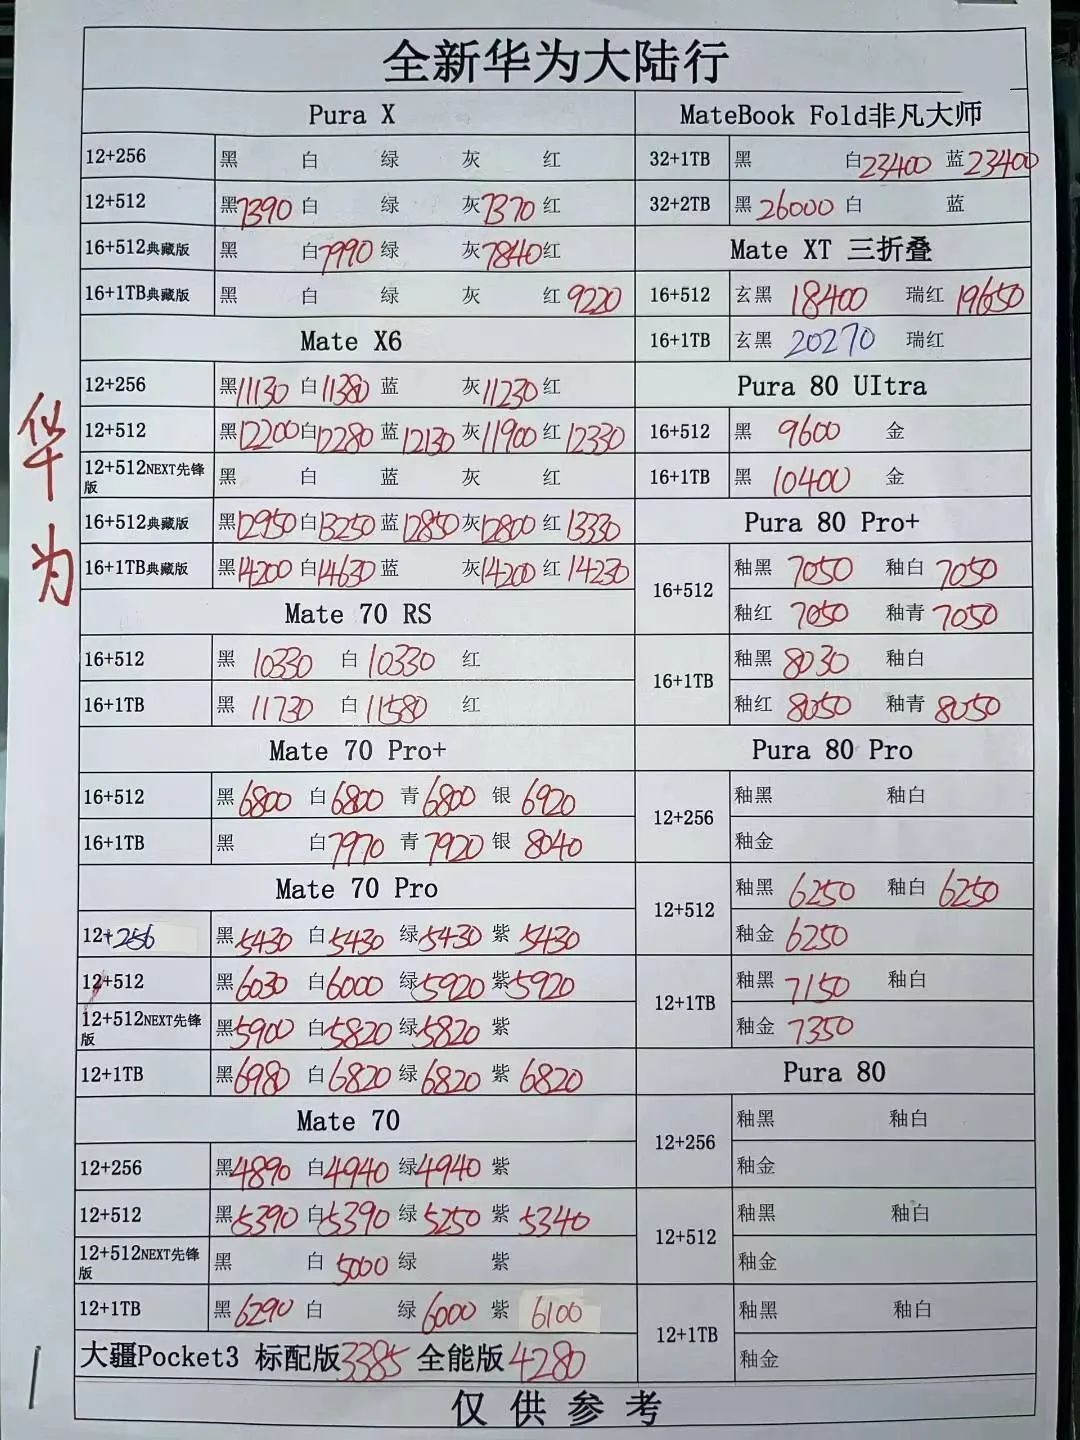 全新华为大陆行
华为
Pura X
12+256 黑 白 绿 灰 红
12+512 黑7390 白 绿 灰7370 红
16+512典藏版 黑 白7990 绿 灰7840 红
16+1TB典藏版 黑 白 绿 灰 红9220
Mate X6
12+256 黑11130 白11380 蓝 灰11230 红
12+512 黑12200 白12280 蓝12130 灰11900 红12330
12+512NEXT先锋版 黑 白 蓝 灰 红
16+512典藏版 黑12950 白13250 蓝12850 灰12800 红13330
16+1TB典藏版 黑14200 白14630 蓝 灰14200 红14230
Mate 70 RS
16+512 黑 10330 白 10330 红
16+1TB 黑 11730 白 11580 红
Mate 70 Pro+
16+512 黑6800 白6800 青6800 银 6920
16+1TB 黑 白7970 青7920 银 8040
Mate 70 Pro
12+256 黑5430 白5430 绿5430 紫5430
12+512 黑6030 白6000 绿5920 紫5920
12+512NEXT先锋版 黑5900 白5820 绿5820 紫
12+1TB 黑6980 白6820 绿6820 紫6820
Mate 70
12+256 黑4890 白4940 绿4940 紫
12+512 黑5390 白5390 绿5250 紫5340
12+512NEXT先锋版 黑 白5000 绿 紫
12+1TB 黑6290 白 绿6000 紫 6100
大疆Pocket3 标配版3385 全能版4280
MateBook Fold非凡大师
32+1TB 黑 白23400 蓝23400
32+2TB 黑26000 白 蓝
Mate XT 三折叠
16+512 玄黑 18400 瑞红 19650
16+1TB 玄黑 20270 瑞红
Pura 80 UItra
16+512 黑 9600 金
16+1TB 黑 10400 金
Pura 80 Pro+
16+512 釉黑 7050 釉白 7050
釉红 7050 釉青 7050
16+1TB 釉黑 8030 釉白
釉红 8050 釉青 8050
Pura 80 Pro
12+256 釉黑 釉白
釉金
12+512 釉黑 6250 釉白 6250
釉金 6250
12+1TB 釉黑 7150 釉白
釉金 7350
Pura 80
12+256 釉黑 釉白
釉金
12+512 釉黑 釉白
釉金
12+1TB 釉黑 釉白
釉金
仅供参考